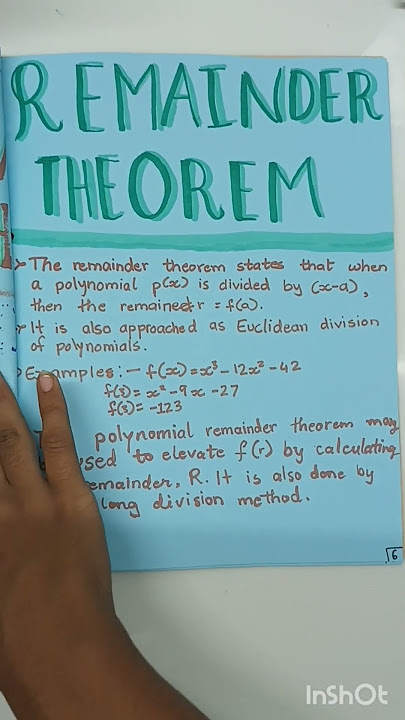 REMAINDER
THEOREM
The remainder theorem states that when
a polynomial p(x) is divided by (x-a),
then the remainedr = f(a).
It is also approached as Euclidean division
of polynomials.
Examples:- f(x)=x³-12x²-42
f(3)= x²-9x-27
f(3)= -123
polynomial remainder theorem may
used to elevate f(r) by calculating
emainder, R. It is also done by
long division method.
6
InShOt